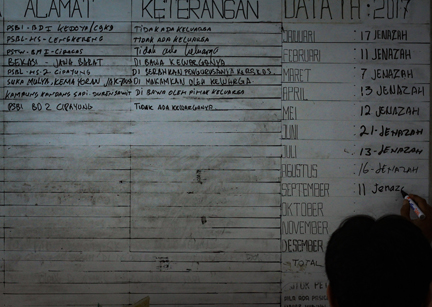 ALAMAT KETERANGAN DATA TH : 2017
PSBI - BDI KEDOYA/CGKB TIDAK ADA KELUARGA
PSBL-HS-LENGKERENG TIDAK ADA KELUARGA
PSTW-BMI-CIRACAS Tidak ada keluarga
BEKASI - JAWA BARAT DI BAWA KELUARGANYA
PSBL-HS-2 CIPAYUNG DI SERAHKAN
SUKA MULYA, DI MAKAMKAN OLEH KELUARGA
DI BAWA OLEH PIHAK KELUARGA
PSBL BD 2 CIPAYUNG TIDAK ADA KELUARGANYA
JANUARI : 17 JENAZAH
FEBRUARI : 11 JENAZAH
MARET : 7 JENAZAH
APRIL : 13 JENAZAH
MEI : 12 JENAZAH
JUNI : 21-JENAZAH
JULI : 13-JENAZAH
AGUSTUS : 16-JENAZAH
SEPTEMBER : 11 Jenaza
OKTOBER
NOVEMBER
DESEMBER
TOTAL